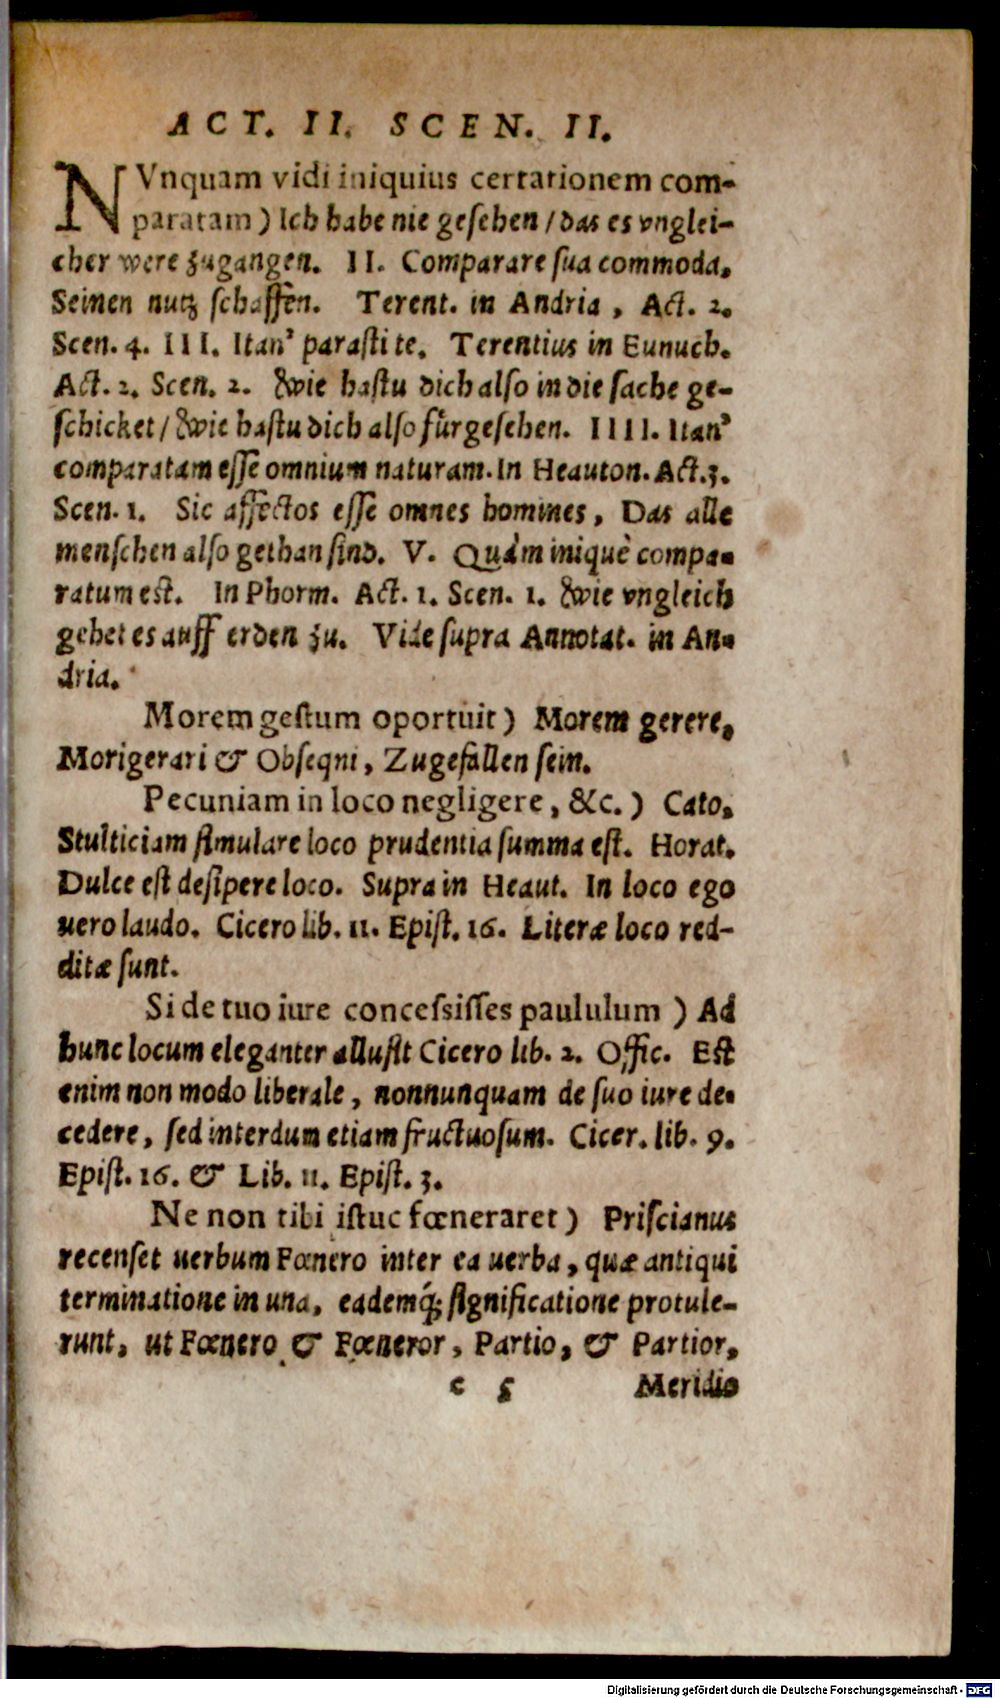 ACT. II. SCEN. II.
NVnquam vidi iniquius certationem com-
paratam ) Ich habe nie geſehen / das es vnglei-
cher were zugangen. II. Comparare ſua commoda.
Seinen nutz ſchaffen. Terent. in Andria , Act. 2.
Scen. 4. III. Itan' paraſti te. Terentius in Eunuch.
Act. 2. Scen. 2. Wie haſtu dich alſo in die ſache ge-
ſchicket / Wie haſtu dich alſo fürgeſehen. IIII. Itan'
comparatam eſſe omnium naturam. In Heauton. Act. 3.
Scen. 1. Sic affectos eſſe omnes homines, Das alle
menſchen alſo gethan ſind. V. Quàm iniquè compa-
ratum eſt. In Phorm. Act. 1. Scen. 1. Wie vngleich
gehet es auff erden zu. Vide ſupra Annotat. in An-
dria.
Morem geſtum oportuit ) Morem gerere,
Morigerari & Obſequi , Zugefallen ſein.
Pecuniam in loco negligere , &c. ) Cato,
Stulticiam ſimulare loco prudentia ſumma eſt. Horat.
Dulce eſt deſipere loco. Supra in Heaut. In loco ego
uero laudo. Cicero lib. 11. Epiſt. 16. Literæ loco red-
ditæ ſunt.
Si de tuo iure conceſsiſſes paululum ) Ad
hunc locum eleganter alluſit Cicero lib. 2. Offic. Eſt
enim non modo liberale , nonnunquam de ſuo iure de-
cedere, ſed interdum etiam fructuoſum. Cicer. lib. 9.
Epiſt. 16. & Lib. 11. Epiſt. 3.
Ne non tibi iſtuc fœneraret ) Priſcianus
recenſet uerbum Fœnero inter ea uerba, quæ antiqui
terminatione in una, eademq́; ſignificatione protule-
runt, ut Fœnero & Fœneror , Partio, & Partior,
c 5 Meridio
Digitalisierung gefördert durch die Deutsche Forschungsgemeinschaft - DFG